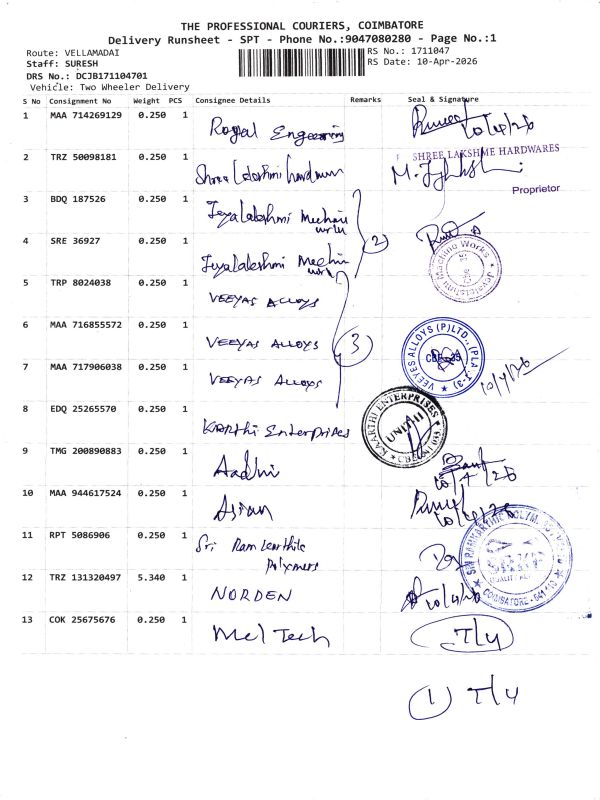 THE PROFESSIONAL COURIERS, COIMBATORE
Delivery Runsheet - SPT - Phone No.:9047080280 - Page No.:1
Route: VELLAMADAI
RS No.: 1711047
Staff: SURESH
RS Date: 10-Apr-2026
DRS No.: DCJB171104701
Vehicle: Two Wheeler Delivery
S No Consignment No Weight PCS Consignee Details Remarks Seal & Signature
1 MAA 714269129 0.250 1 Royal Engineering 10/4/26
2 TRZ 50098181 0.250 1 Shree Lakshmi hardware SHREE LAKSHME HARDWARES
Proprietor
3 BDQ 187526 0.250 1 Jeyalakshmi Mechani
works
4 SRE 36927 0.250 1 Jeyalakshmi Mechin 2
works
Jeyalakshmi Machine Works
5 TRP 8024038 0.250 1 VEEYAS ALLOYS
6 MAA 716855572 0.250 1 VEEYAS ALLOYS 3
VEEYES ALLOYS (P) LTD., (PLA
7 MAA 717906038 0.250 1 VEEYAS ALLOYS 10/4/26
8 EDQ 25265570 0.250 1 KARTHI Enterprises
KAARTHI ENTERPRISES
UNIT-II
9 TMG 200890883 0.250 1 Aadhi 10/4/26
10 MAA 944617524 0.250 1 Asian 10/4/26
11 RPT 5086906 0.250 1 Sri Ramkarthik
Polymers
SRKP
COIMBATORE - 641
12 TRZ 131320497 5.340 1 NORDEN 10/4/26
13 COK 25675676 0.250 1 Mel Tech T/4
1 T/4